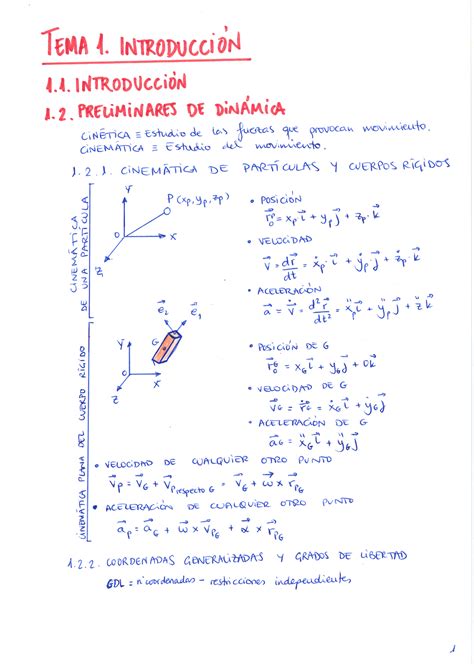 TEMA 1. INTRODUCCIÓN
1.1. INTRODUCCIÓN
1.2. PRELIMINARES DE DINÁMICA
CINÉTICA ≡ Estudio de las fuerzas que provocan movimiento.
CINEMÁTICA ≡ Estudio del movimiento.
1.2.1. CINEMÁTICA DE PARTÍCULAS Y CUERPOS RÍGIDOS
CINEMÁTICA DE UNA PARTÍCULA
Y
P (xp, yp, zp)
O
X
Z
• POSICIÓN
r⃗₀ᴾ = xp i⃗ + yp j⃗ + zp · k⃗
• VELOCIDAD
v⃗ = dr⃗/dt = ẋp · i⃗ + ẏp j⃗ + żp · k⃗
• ACELERACIÓN
a⃗ = v⃗̇ = d²r⃗/dt² = ẍp i⃗ + ÿp j⃗ + z̈ k⃗
CINEMÁTICA PLANA DEL CUERPO RÍGIDO
e⃗₂
e⃗₁
Y
G
O
X
Z
• POSICIÓN DE G
r⃗₀ᴳ = xG i⃗ + yG j⃗ + 0k⃗
• VELOCIDAD DE G
v⃗G = r⃗̇G = ẋG i⃗ + ẏG j⃗
• ACELERACIÓN DE G
a⃗G = ẍG i⃗ + ÿG j⃗
• VELOCIDAD DE CUALQUIER OTRO PUNTO
v⃗P = v⃗G + v⃗P respecto G = v⃗G + ω⃗ x r⃗PG
• ACELERACIÓN DE CUALQUIER OTRO PUNTO
a⃗p = a⃗G + ω⃗ x v⃗PG + α⃗ x r⃗PG
1.2.2. COORDENADAS GENERALIZADAS Y GRADOS DE LIBERTAD
GDL = nº coordenadas - restricciones independientes
1